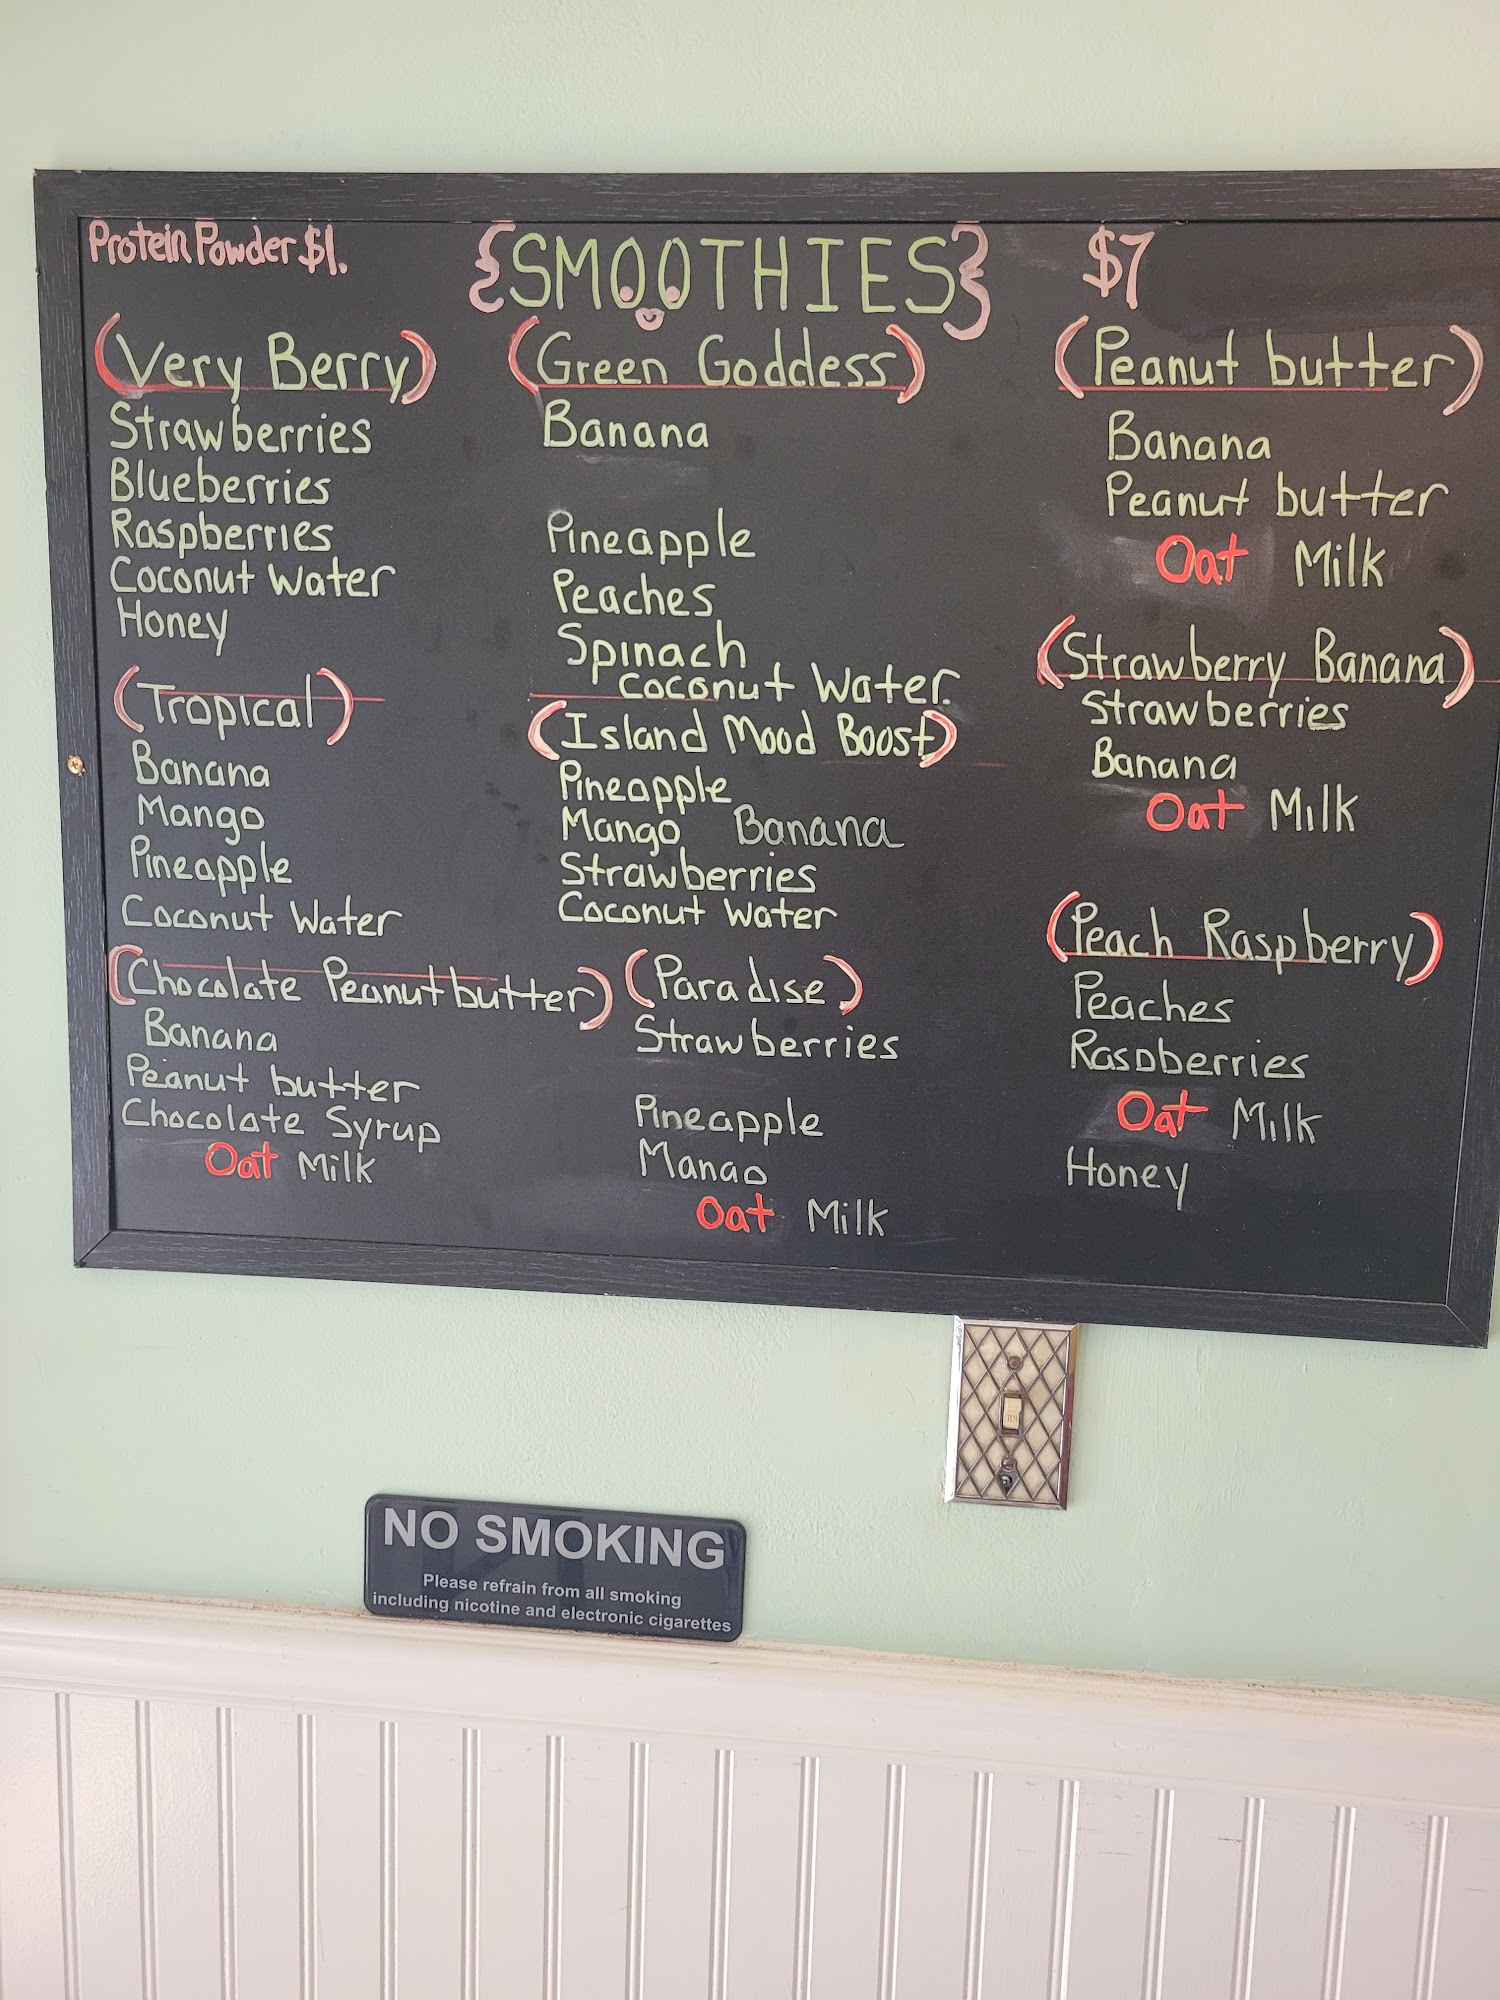 Protein Powder $1.
{SMOOTHIES}
$7
(Very Berry)
Strawberries
Blueberries
Raspberries
Coconut Water
Honey
(Tropical)
Banana
Mango
Pineapple
Coconut Water
(Chocolate Peanut butter)
Banana
Peanut butter
Chocolate Syrup
Oat Milk
(Green Goddess)
Banana
Pineapple
Peaches
Spinach
Coconut Water
(Island Mood Boost)
Pineapple
Mango Banana
Strawberries
Coconut Water
(Paradise)
Strawberries
Pineapple
Mango
Oat Milk
(Peanut butter)
Banana
Peanut butter
Oat Milk
(Strawberry Banana)
Strawberries
Banana
Oat Milk
(Peach Raspberry)
Peaches
Raspberries
Oat Milk
Honey
ON
NO SMOKING
Please refrain from all smoking
including nicotine and electronic cigarettes